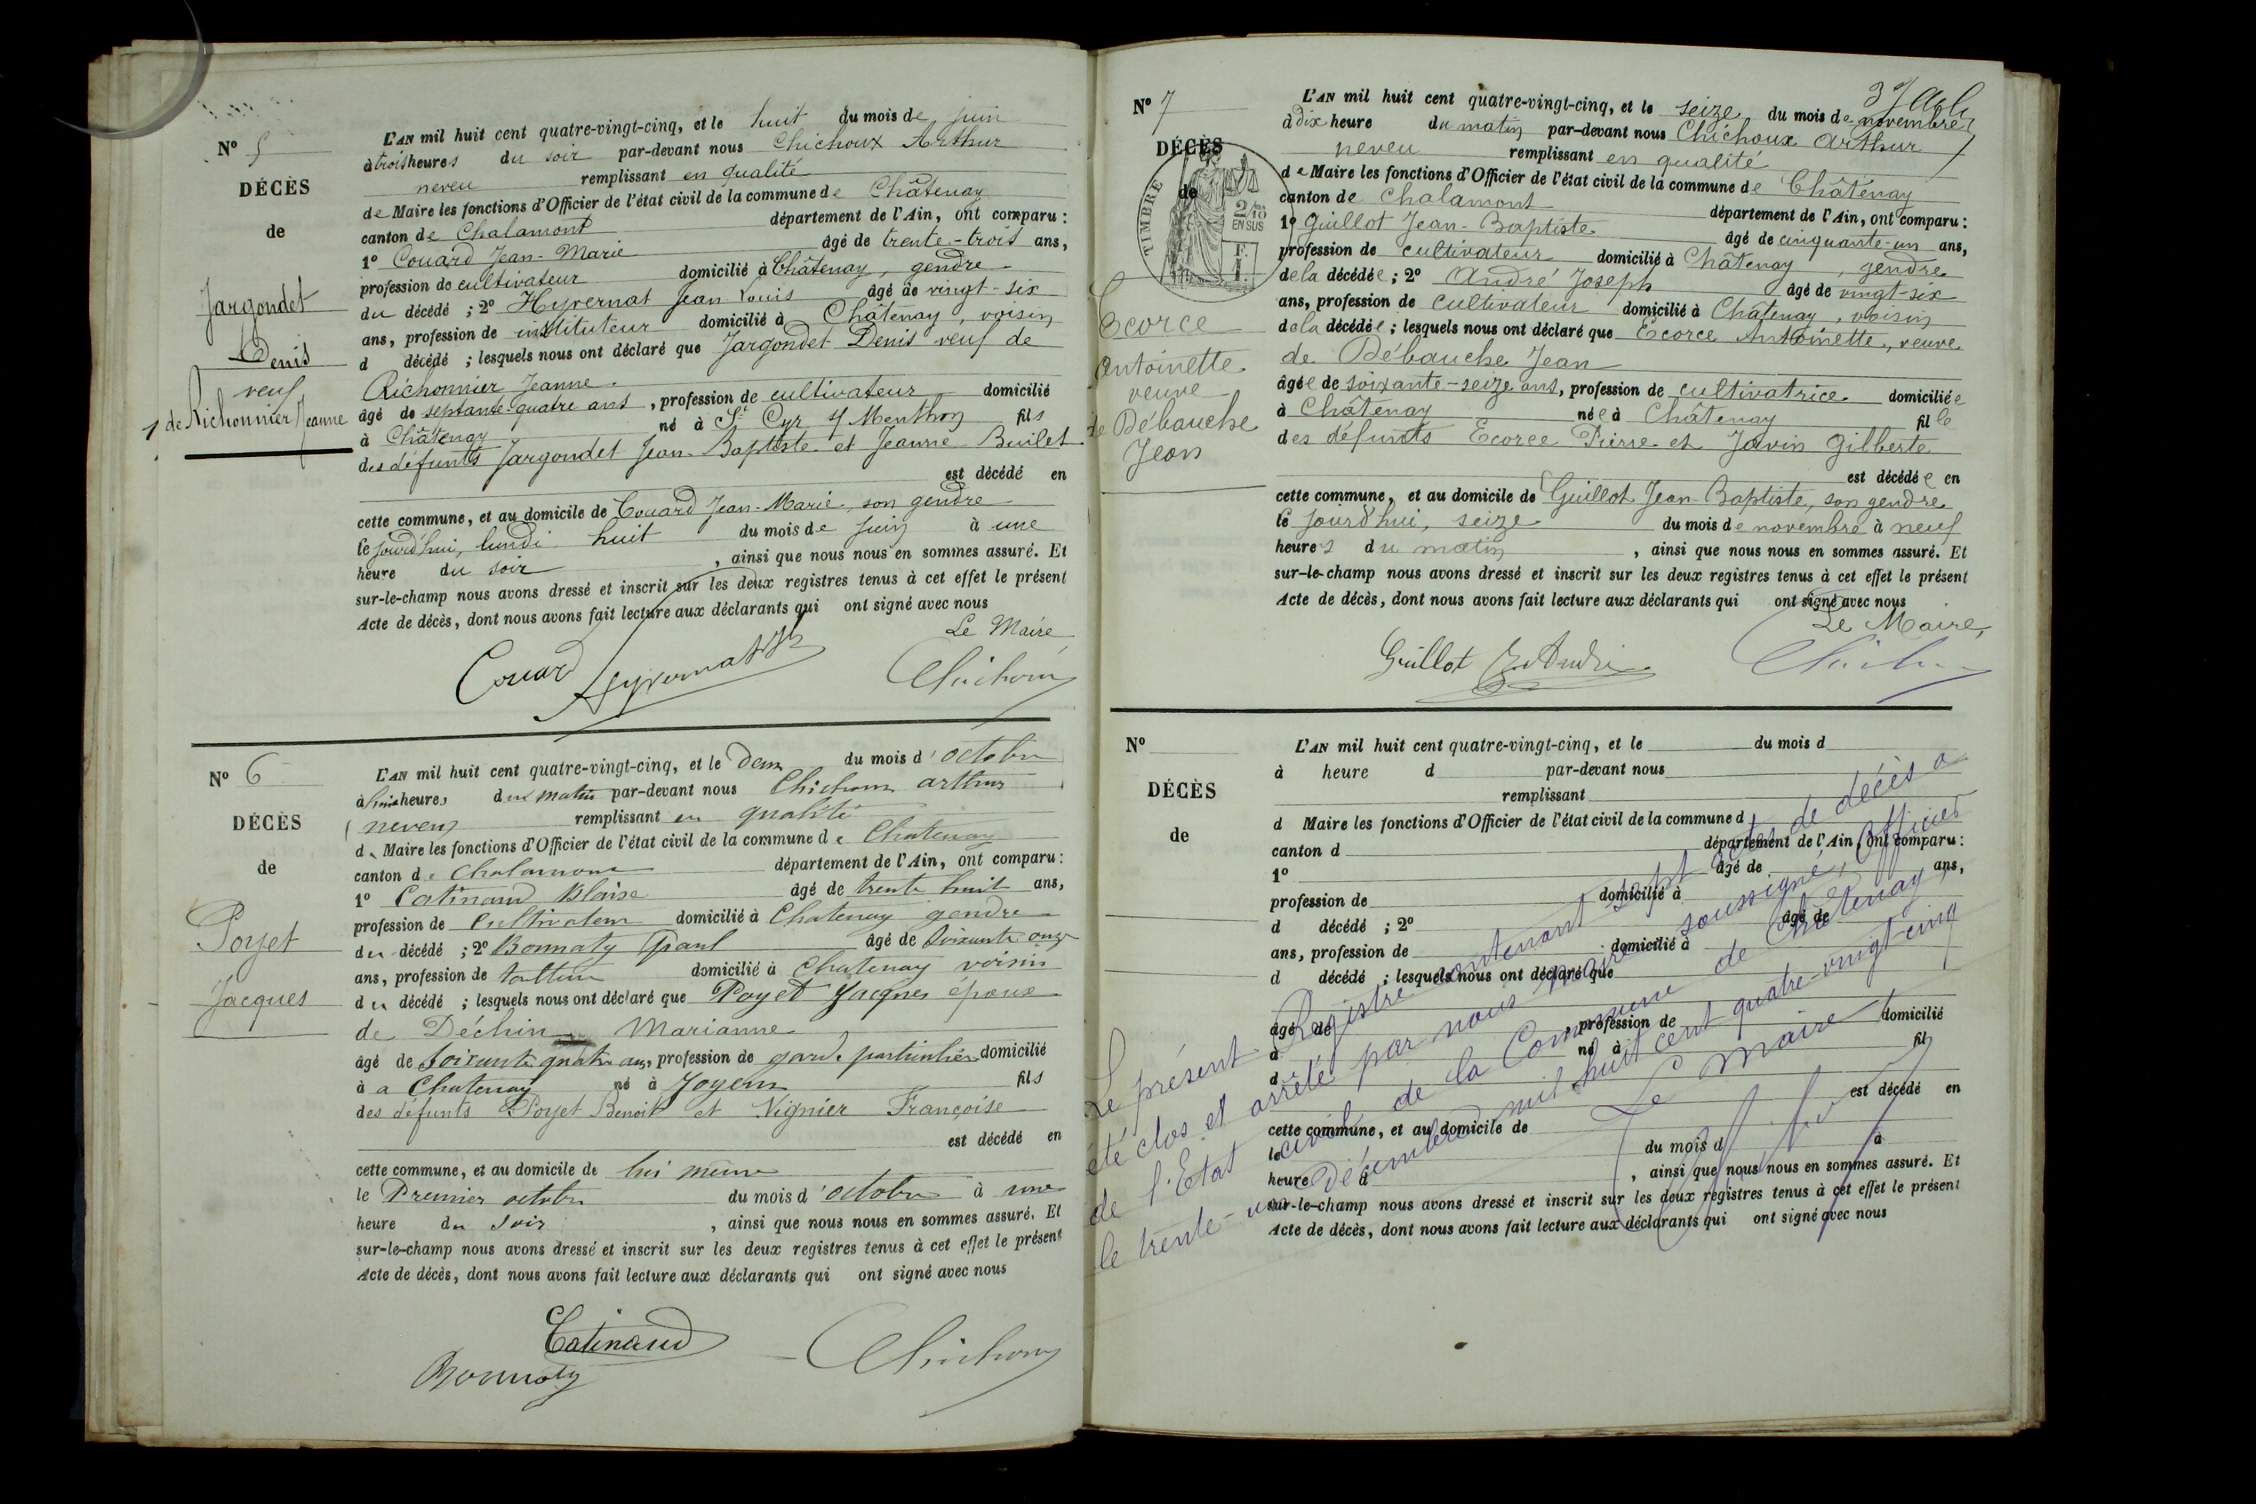 N° 5
DÉCÈS
de
Jargondet
Denis
veuf
de Richonnier Jeanne
L'AN mil huit cent quatre-vingt-cinq, et le huit du mois de juin
à trois heures du soir par-devant nous Chichoux Arthur
neveu remplissant en qualité
de Maire les fonctions d'Officier de l'état civil de la commune de Châtenay
canton de Chalamont département de l'Ain, ont comparu :
1° Couard Jean-Marie âgé de trente-trois ans,
profession de cultivateur domicilié à Châtenay, gendre
du décédé ; 2° Hyvernat Jean Louis âgé de vingt-six
ans, profession de instituteur domicilié à Châtenay, voisin
d décédé ; lesquels nous ont déclaré que Jargondet Denis veuf de
Richonnier Jeanne
âgé de septante-quatre ans, profession de cultivateur domicilié
à Châtenay né à St Cyr s/ Menthon fils
des défunts Jargondet Jean-Baptiste et Jeanne Builet
est décédé en
cette commune, et au domicile de Couard Jean-Marie, son gendre
le jourd'hui, lundi huit du mois de juin à une
heure du soir, ainsi que nous nous en sommes assuré. Et
sur-le-champ nous avons dressé et inscrit sur les deux registres tenus à cet effet le présent
Acte de décès, dont nous avons fait lecture aux déclarants qui ont signé avec nous
Le Maire
Couard Hyvernat Chichoux
N° 6
DÉCÈS
de
Poyet
Jacques
L'AN mil huit cent quatre-vingt-cinq, et le deux du mois d'octobre
à heures du matin par-devant nous Chichoux arthur
neveu remplissant en qualité
de Maire les fonctions d'Officier de l'état civil de la commune de Chatenay
canton de Chalamont département de l'Ain, ont comparu :
1° Catinaud Blaise âgé de trente huit ans,
profession de cultivateur domicilié à Chatenay gendre
du décédé ; 2° Bonnaty Paul âgé de soixante onze
ans, profession de tailleur domicilié à Chatenay voisin
du décédé ; lesquels nous ont déclaré que Poyet Jacques époux
de Déchin Marianne
âgé de soixante quatre ans, profession de garde particulier domicilié
à a Chatenay né à Joyeux fils
des défunts Poyet Benoit et Vignier Françoise
est décédé en
cette commune, et au domicile de lui même
le Premier octobre du mois d'octobre à une
heure du soir, ainsi que nous nous en sommes assuré. Et
sur-le-champ nous avons dressé et inscrit sur les deux registres tenus à cet effet le présent
Acte de décès, dont nous avons fait lecture aux déclarants qui ont signé avec nous
Catinaud
Bonnaty Chichoux
3
N° 7
DÉCÈS
de
TIMBRE
2/10
EN SUS
Ecorce
Antoinette
veuve
de Débauche
Jean
L'AN mil huit cent quatre-vingt-cinq, et le seize du mois de novembre
à dix heure du matin par-devant nous Chichoux Arthur
neveu remplissant en qualité
de Maire les fonctions d'Officier de l'état civil de la commune de Châtenay
canton de Chalamont département de l'Ain, ont comparu :
1° Guillot Jean-Baptiste âgé de cinquante-un ans,
profession de cultivateur domicilié à Châtenay, gendre
de la décédée ; 2° André Joseph âgé de vingt-six
ans, profession de cultivateur domicilié à Châtenay, voisin
de la décédée ; lesquels nous ont déclaré que Ecorce Antoinette, veuve
de Débauche Jean
âgée de soixante-seize ans, profession de cultivatrice domiciliée
à Châtenay née à Châtenay fille
des défunts Ecorce Pierre et Javin Gilberte
est décédée en
cette commune, et au domicile de Guillot Jean-Baptiste, son gendre
le jourd'hui, seize du mois de novembre à neuf
heures du matin, ainsi que nous nous en sommes assuré. Et
sur-le-champ nous avons dressé et inscrit sur les deux registres tenus à cet effet le présent
Acte de décès, dont nous avons fait lecture aux déclarants qui ont signé avec nous
Le Maire,
Guillot J. André Chichoux
N°
DÉCÈS
de
L'AN mil huit cent quatre-vingt-cinq, et le du mois d
à heure d par-devant nous
remplissant
d Maire les fonctions d'Officier de l'état civil de la commune d
canton d département de l'Ain, ont comparu :
1° âgé de ans,
profession de domicilié à
d décédé ; 2° âgé de
ans, profession de domicilié à
d décédé ; lesquels nous ont déclaré que
âgé de , profession de domicilié
à né à fil
d
est décédé en
cette commune, et au domicile de
le du mois d à
heure d , ainsi que nous nous en sommes assuré. Et
sur-le-champ nous avons dressé et inscrit sur les deux registres tenus à cet effet le présent
Acte de décès, dont nous avons fait lecture aux déclarants qui ont signé avec nous
Le présent Registre contenant sept actes de décès a
été clos et arrêté par nous maire soussigné, Officier
de l'Etat civil de la Commune de Châtenay,
le trente-un décembre mil huit cent quatre-vingt-cinq
Le Maire